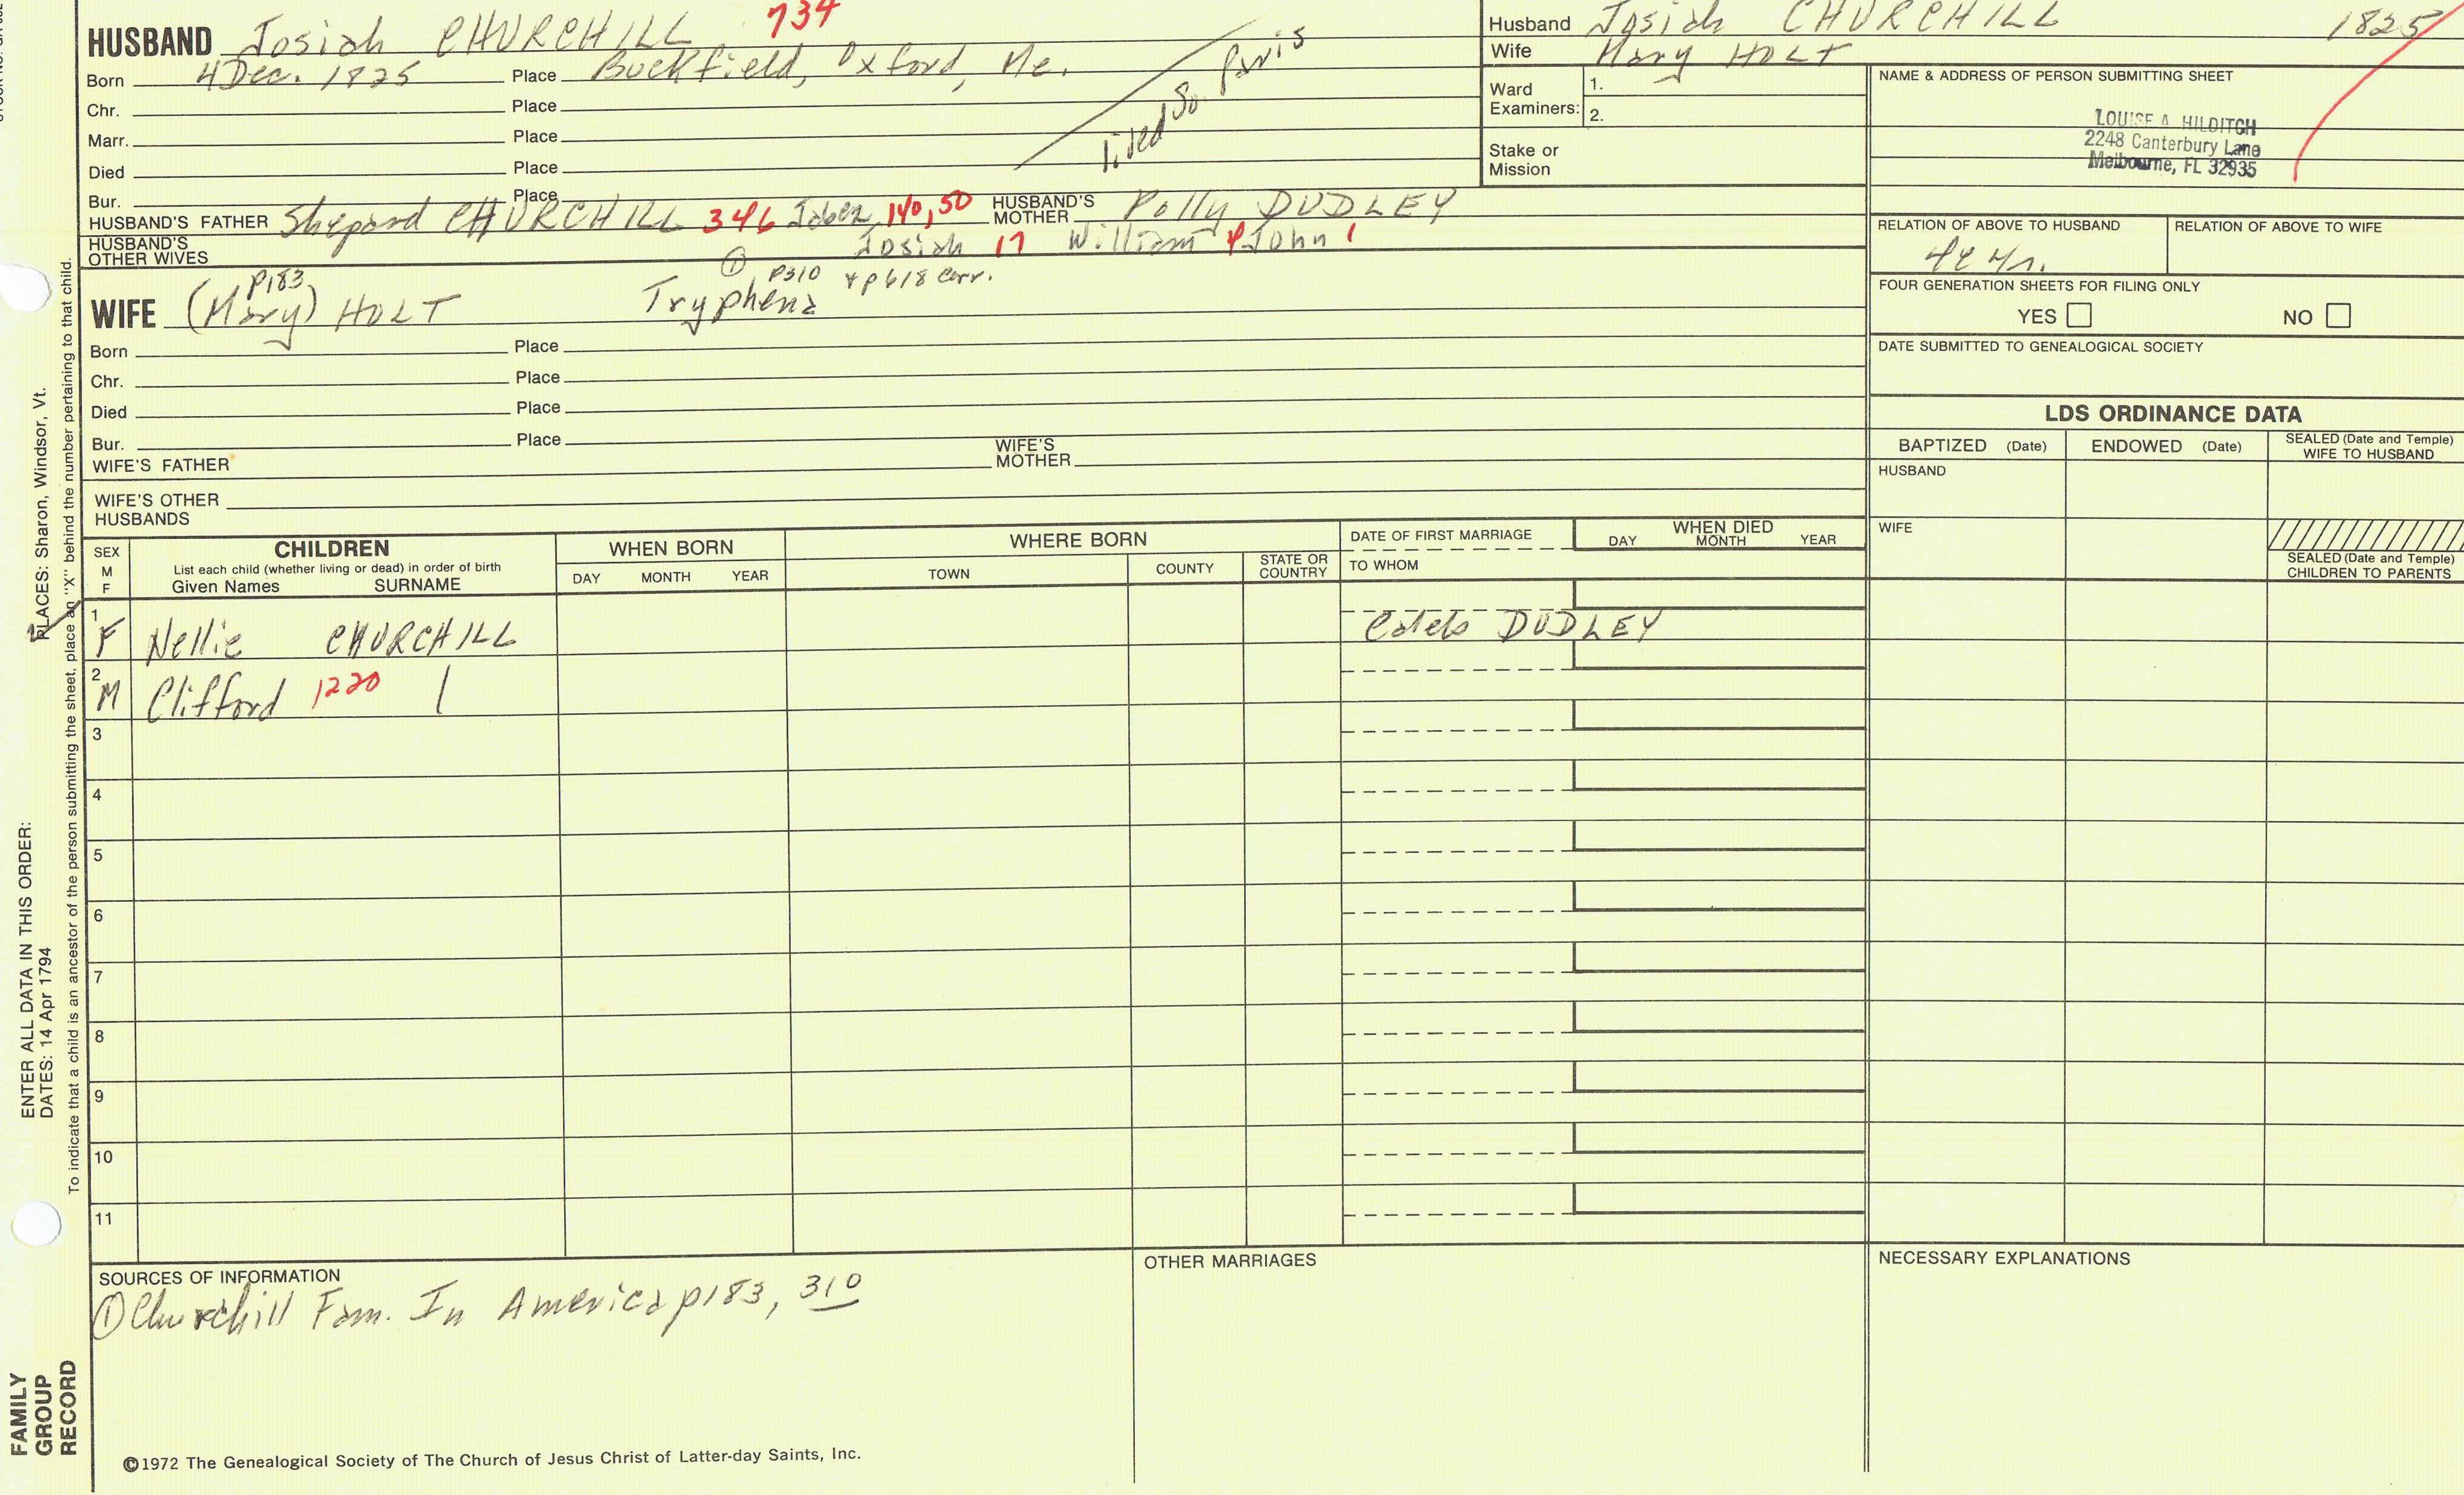 HUSBAND Josiah CHURCHILL 734
Born 4 Dec. 1825 Place Buckfield, Oxford, Me.
Chr. Place
Marr. Place
Died Place
Bur. Place
lived So. Paris
HUSBAND'S FATHER Shepard CHURCHILL 346 Jabez 140, 50 HUSBAND'S MOTHER Polly DUDLEY
HUSBAND'S OTHER WIVES Josiah 17 William 4 John 1
① p310 + p618 corr.
p183
WIFE (Mary) HOLT Tryphena
Born Place
Chr. Place
Died Place
Bur. Place
WIFE'S FATHER WIFE'S MOTHER
WIFE'S OTHER HUSBANDS
Husband Josiah CHURCHILL 1825
Wife Mary HOLT
Ward Examiners: 1.
2.
Stake or Mission
NAME & ADDRESS OF PERSON SUBMITTING SHEET
LOUISE A HILDITCH
2248 Canterbury Lane
Melbourne, FL 32935
RELATION OF ABOVE TO HUSBAND RELATION OF ABOVE TO WIFE
FOUR GENERATION SHEETS FOR FILING ONLY
YES NO
DATE SUBMITTED TO GENEALOGICAL SOCIETY
LDS ORDINANCE DATA
BAPTIZED (Date) ENDOWED (Date) SEALED (Date and Temple) WIFE TO HUSBAND
HUSBAND
WIFE
SEALED (Date and Temple) CHILDREN TO PARENTS
SEX M F
CHILDREN
List each child (whether living or dead) in order of birth
Given Names SURNAME
WHEN BORN
DAY MONTH YEAR
WHERE BORN
TOWN COUNTY STATE OR COUNTRY
DATE OF FIRST MARRIAGE
TO WHOM
WHEN DIED
DAY MONTH YEAR
1 F Nellie CHURCHILL Caleb DUDLEY
2 M Clifford 1220
3
4
5
6
7
8
9
10
11
SOURCES OF INFORMATION
① Churchill Fam. In America p183, 310
OTHER MARRIAGES
NECESSARY EXPLANATIONS
©1972 The Genealogical Society of The Church of Jesus Christ of Latter-day Saints, Inc.
FAMILY GROUP RECORD
ENTER ALL DATA IN THIS ORDER:
DATES: 14 Apr 1794
PLACES: Sharon, Windsor, Vt.
To indicate that a child is an ancestor of the person submitting the sheet, place an "X" behind the number pertaining to that child.